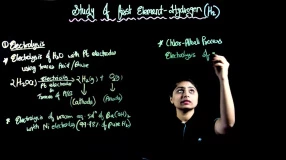 Study of First Element-Hydrogen (H₂)
① Electrolysis
* Electrolysis of H₂O with Pt electrodes
using traces Acid/Base
2H₂O(l) Electricity 2H₂(g) + O₂(g)
Pt electrode
Traces of A/B (Cathode) (Anode)
* Electrolysis of warm aq. solⁿ of Ba(OH)₂
with Ni electrodes (99.95% of pure H₂)
* Chlor-Alkali Process
Electrolysis of